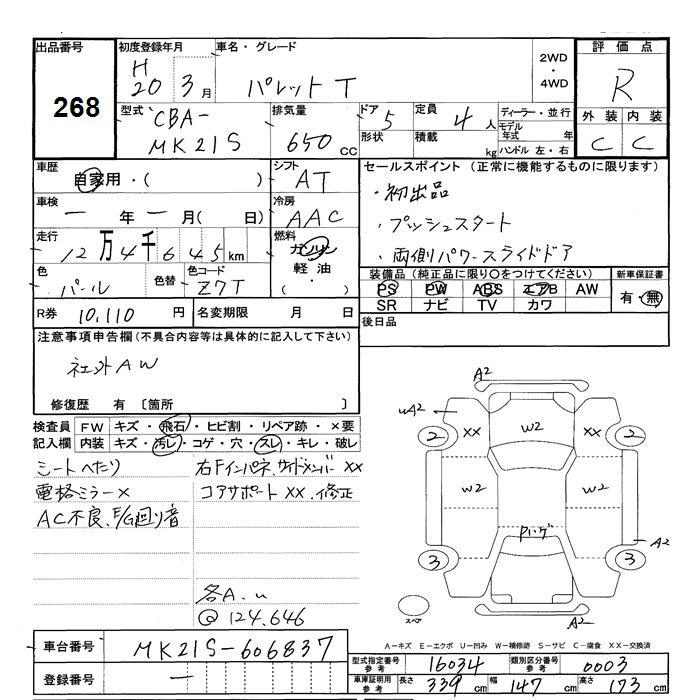 出品番号
268
初度登録年月
H
20 3月
車名・グレード
パレットT
2WD
・
4WD
評価点
R
外装 内装
C C
型式 CBA-
MK21S
排気量
650 CC
ドア 5
形状
定員 4人
積載 kg
ディーラー・並行
モデル年式 年
ハンドル 左・右
車歴
自家用・( )
シフト
AT
車検
ー 年 ー 月( 日)
冷房
AAC
走行
12万4千645km
燃料
ガソリン
軽油
( ・ )
色
パール
色替
色コード
Z7T
R券 10,110 円
名変期限 月 日
セールスポイント(正常に機能するものに限ります)
・初出品
・プッシュスタート
・両側パワースライドドア
装備品(純正品に限り○をつけてください)
PS PW ABS エアB AW
SR ナビ TV カワ
新車保証書
有・無
後日品
注意事項申告欄(不具合内容等は具体的に記入して下さい)
社外AW
修復歴 有 〔箇所 〕
検査員記入欄
FW キズ・飛石・ヒビ割・リペア跡・×要
内装 キズ・汚レ・コゲ・穴・スレ・キレ・破レ
シートへたり
電格ミラー×
AC不良、E/G廻り音
右Fインパネ、サイドメンバーXX
コアサポートXX、修正
各A.u
@124.646
A2
uA2
2 XX W2 XX 2
W2 W2
Pハゲ
3 3
A2
スペア
A2
A-キズ E-エクボ U-凹み W-補修跡 S-サビ C-腐食 XX-交換済
車台番号 MK21S-606837
登録番号 ー
型式指定番号
参考
16034
類別区分番号
参考
0003
車庫証明用
参考
長さ 339cm 幅 147cm 高さ 173cm